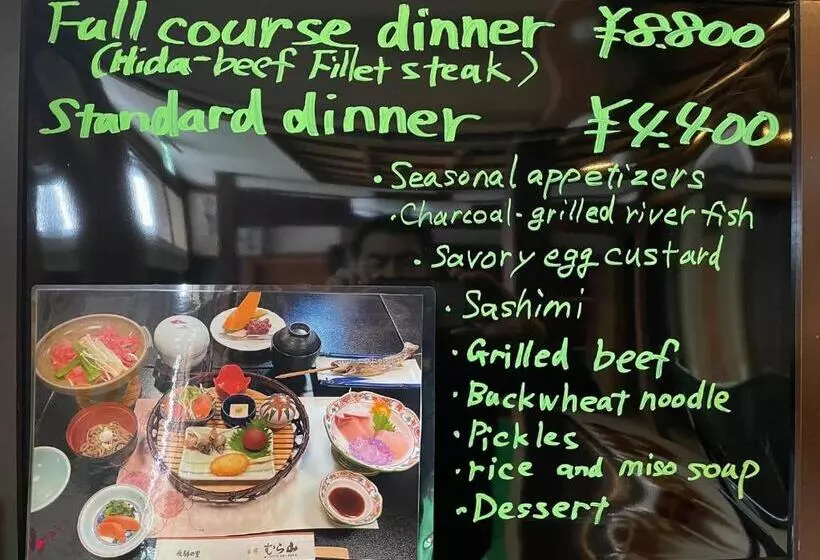 Full course dinner ¥8.800
(Hida-beef Fillet steak)
Standard dinner ¥4.400
・Seasonal appetizers
・Charcoal-grilled river fish
・Savory egg custard
・Sashimi
・Grilled beef
・Buckwheat noodle
・Pickles
・rice and miso soup
・Dessert
飛騨の里 むら山